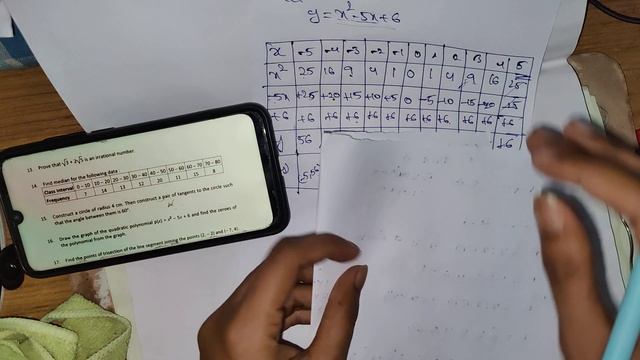 y = x² - 5x + 6
x -5 -4 -3 -2 -1 0 1 2 3 4 5
x² 25 16 9 4 1 0 1 4 9 16 25
-5x +25 +20 +15 +10 +5 0 -5 -10 -15 -20
+6 +6 +6 +6 +6 +6 +6 +6 +6 +6 +6 +6
y 56 +6
13. Prove that √3 + 2√5 is an irrational number.
14. Find median for the following data
Class interval 0 – 10 10 – 20 20 – 30 30 – 40 40 – 50 50 – 60 60 – 70 70 – 80
Frequency 7 14 13 12 20 11 15 8
15. Construct a circle of radius 4 cm. Then construct a pair of tangents to the circle such
that the angle between them is 60°
16. Draw the graph of the quadratic polynomial p(x) = x² – 5x + 6 and find the zeroes of
the polynomial from the graph.
17. Find the points of trisection of the line segment joining the points (2, – 2) and (– 7, 4).